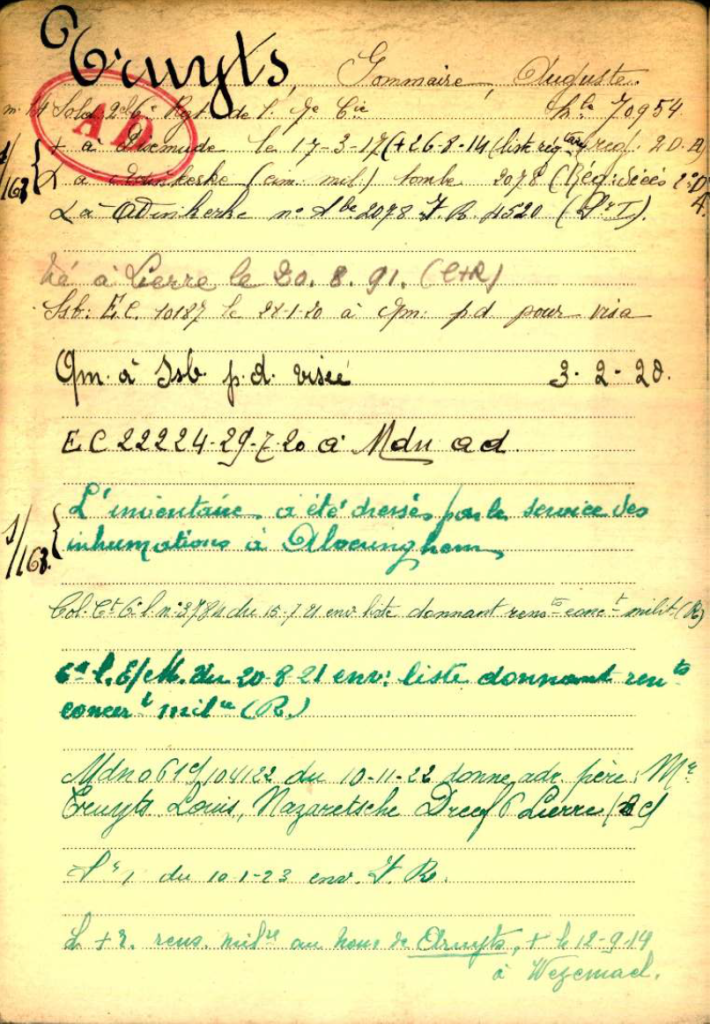 Truyts, Gommaire, Auguste.
Sold. 2 Rgt de l. 9e Cie Mle 70954
AD
+ à Dixmude le 17-3-17 (+26-8-14 (liste rég. 2D.A)
1/163 { L à Adinkerke (cim. mil.) tombe 2078 (Rég. décès 2e D A
L à Adinkerke no tbe 2078 F.R. 4520 (Sr I).
Né à Lierre le 20.8.91. (C+R)
Ssb: E.C. 10187 le 22-1-20 à Qm: p.d. pour visa
Qm. à Ssb p.d. visée 3-2-20.
EC 22224-29-7-20 à Mdn ad
1/163 { L'inventaire a été dressé par le service des
inhumations à Alveringhem
Col. Ct 6e l. no 3784 du 15-7-21 env. liste donnant rensts conct milit. (R)
6e l. E/M. du 20-8-21 env: liste donnant rents
concert milre (R.)
Mdn 061c/104122 du 10-11-22 donne adr. père: Mr
Truyts Louis, Nazaretsche Dreef 6 Lierre
Sr 1 du 10-1-23 env. F.R.
L + R. rens. milre au nom de Truyts, + le 12-9-14
à Wezemael.